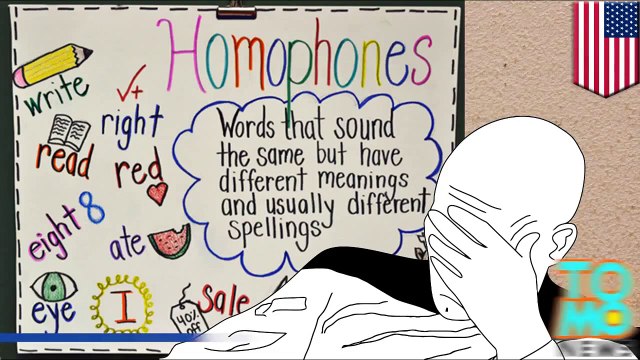 Homophones
write
right
read
red
eight 8
ate
eye
I
40% off
sale
Words that sound
the same but have
different meanings
and usually different
spellings
TO
MO